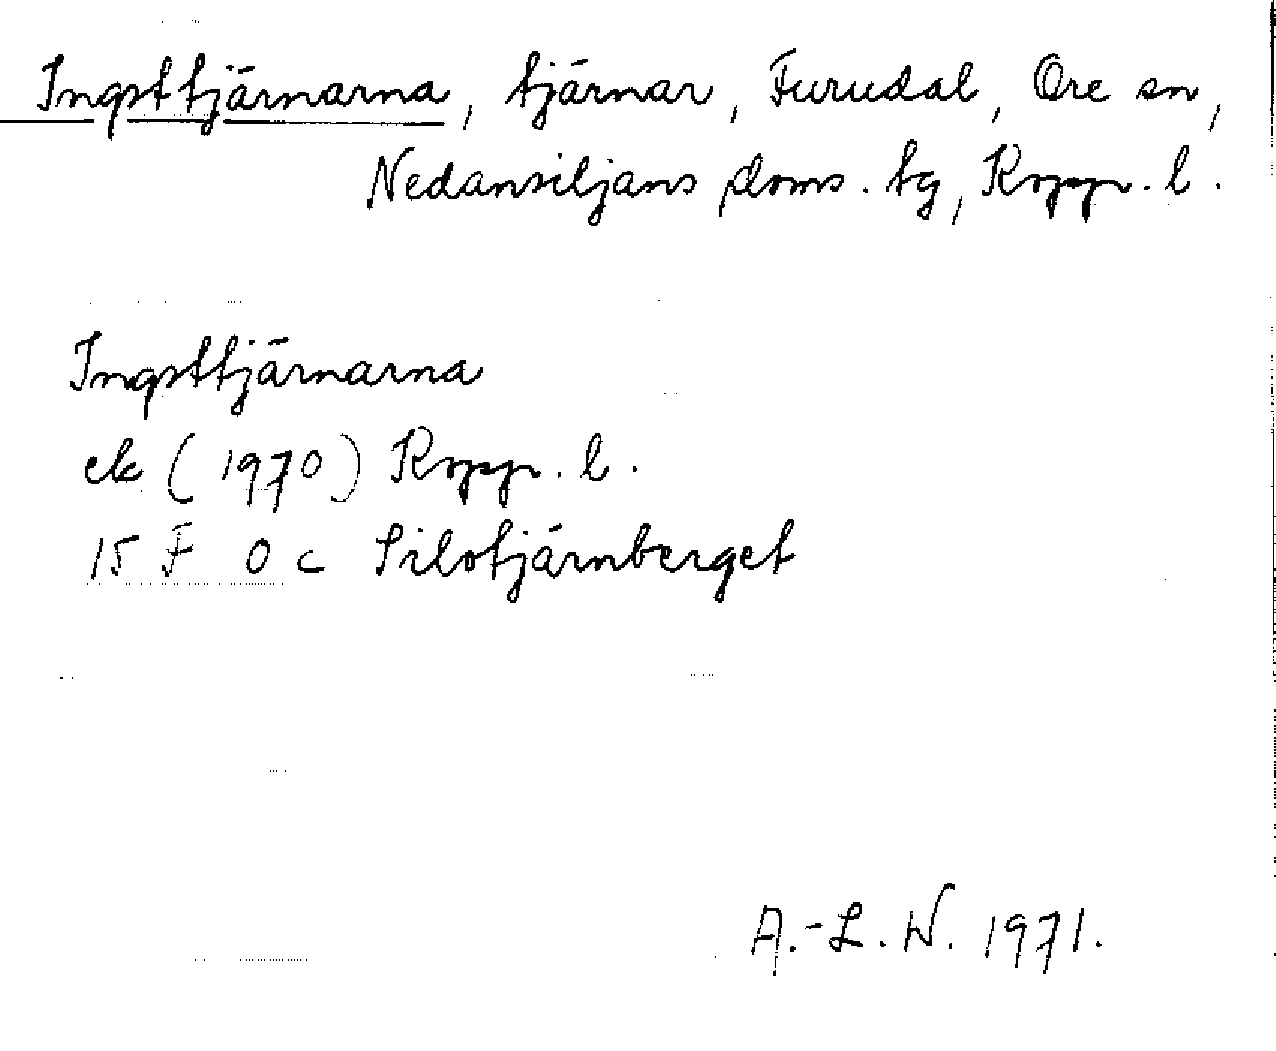 Ingsttjärnarna, tjärnar, Furudal, Ore sn,
Nedansiljans doms. tg, Kopp. l.
Ingsttjärnarna
ek (1970) Kopp. l.
15 F 0 c Silotjärnberget
A.-L. W. 1971.